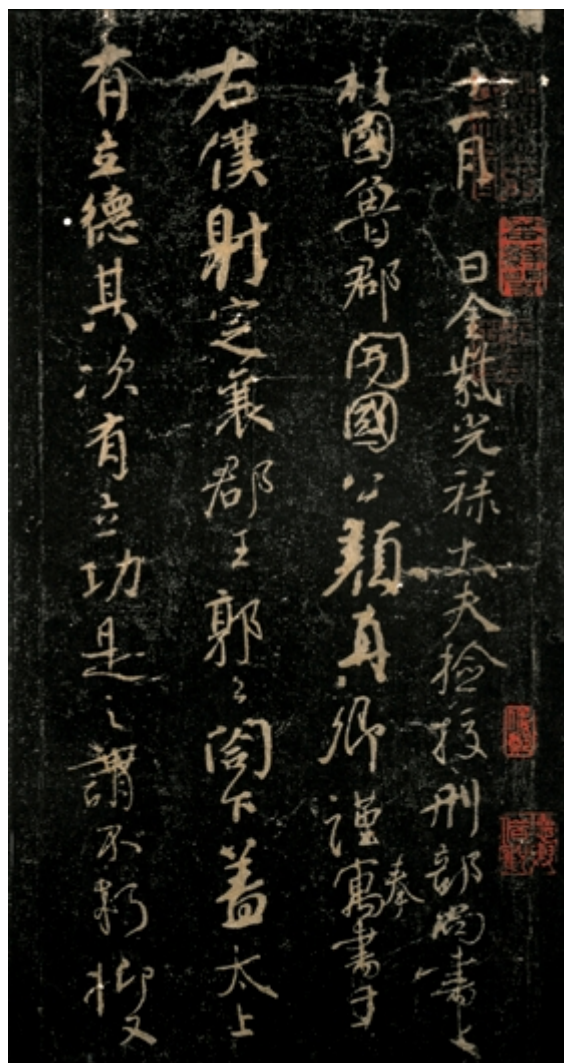 十一月 日金紫光祿大夫撿挍刑部尚書上
柱國魯郡開國公顏真卿謹奉寓書于
右僕射定襄郡王郭公閤下蓋太上
有立德其次有立功是之謂不朽抑又